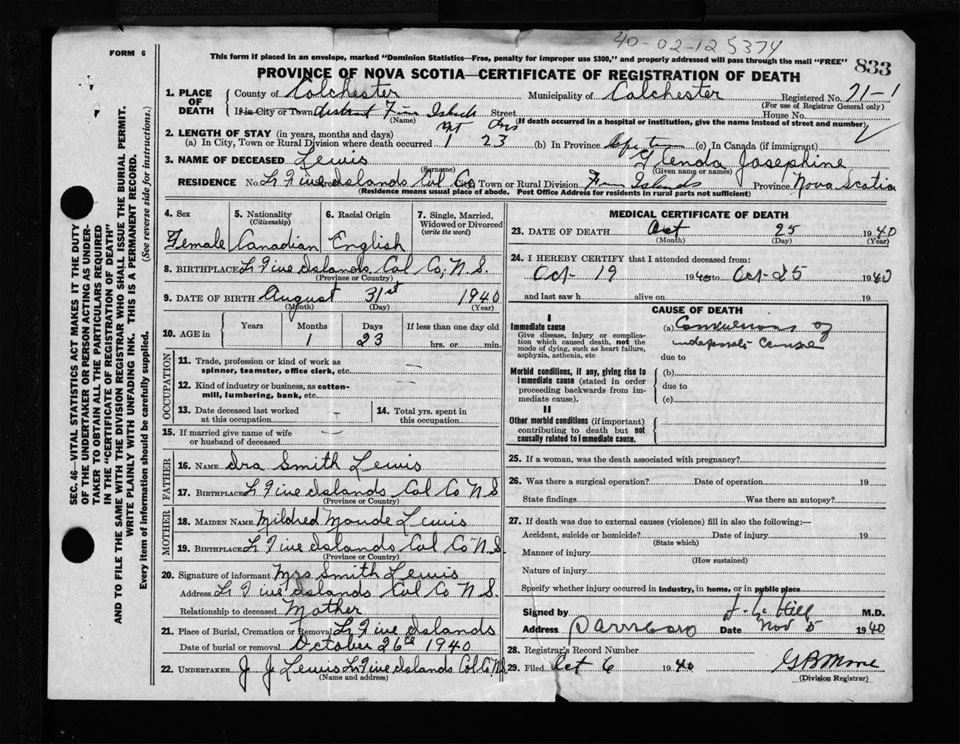 40-02-125374
FORM 6
This form if placed in an envelope, marked "Dominion Statistics—Free, penalty for improper use $300," and properly addressed will pass through the mail "FREE"
833
PROVINCE OF NOVA SCOTIA—CERTIFICATE OF REGISTRATION OF DEATH
1. PLACE OF DEATH
County of Colchester Municipality of Colchester Registered No. 71-1
(For use of Registrar General only)
If in City or Town district Islands Street House No.
(Name) (If death occurred in a hospital or institution, give the name instead of street and number)
2. LENGTH OF STAY (in years, months and days)
(a) In City, Town or Rural Division where death occurred 1 23 (b) In Province (c) In Canada (if immigrant)
3. NAME OF DECEASED Lewis Glenda Josephine
(Surname) (Given name or names)
RESIDENCE No. Lr Five Islands Col Co Town or Rural Division Islands Province Nova Scotia
(Residence means usual place of abode. Post Office Address for residents in rural parts not sufficient)
4. Sex
5. Nationality (Citizenship)
6. Racial Origin
7. Single, Married, Widowed or Divorced (write the word)
Female Canadian English
8. BIRTHPLACE Lr Five Islands Col Co, N.S.
(Province or Country)
9. DATE OF BIRTH August 31st 1940
(Month) (Day) (Year)
10. AGE in
Years Months Days If less than one day old
1 23 hrs. or min.
OCCUPATION
11. Trade, profession or kind of work as spinner, teamster, office clerk, etc.
12. Kind of industry or business, as cotton-mill, lumbering, bank, etc.
13. Date deceased last worked at this occupation
14. Total yrs. spent in this occupation
15. If married give name of wife or husband of deceased
FATHER
16. NAME Ira Smith Lewis
17. BIRTHPLACE Lr Five Islands Col Co N S
(Province or Country)
MOTHER
18. MAIDEN NAME Mildred Maude Lewis
19. BIRTHPLACE Lr Five Islands Col Co N.S.
(Province or Country)
20. Signature of informant Mrs Smith Lewis
Address Lr Five Islands Col Co N S.
Relationship to deceased Mother
21. Place of Burial, Cremation or Removal Lr Five Islands
Date of burial or removal October 26th 1940
22. UNDERTAKER J J Lewis Lr Five Islands Col Co. N.
(Name and address)
MEDICAL CERTIFICATE OF DEATH
23. DATE OF DEATH Oct 25 1940
(Month) (Day) (Year)
24. I HEREBY CERTIFY that I attended deceased from:
Oct-19 1940 to Oct-25 1940
and last saw h alive on 19
CAUSE OF DEATH
I
Immediate cause
Give disease, injury or complication which caused death, not the mode of dying, such as heart failure, asphyxia, asthenia, etc
(a) Convulsions of
cause
due to
Morbid conditions, if any, giving rise to immediate cause (stated in order proceeding backwards from immediate cause).
(b)
due to
(c)
II
Other morbid conditions (if important) contributing to death but not causally related to immediate cause.
25. If a woman, was the death associated with pregnancy?
26. Was there a surgical operation? Date of operation 19
State findings Was there an autopsy?
27. If death was due to external causes (violence) fill in also the following:—
Accident, suicide or homicide? Date of injury 19
(State which)
Manner of injury
(How sustained)
Nature of injury
Specify whether injury occurred in industry, in home, or in public place
Signed by Hill M.D.
Address Parrsboro Date Nov 5 1940
28. Registrar's Record Number
29. Filed Oct 6 1940 G B More
(Division Registrar)
SEC. 46—VITAL STATISTICS ACT MAKES IT THE DUTY
OF THE UNDERTAKER OR PERSON ACTING AS UNDER-
TAKER TO OBTAIN ALL THE PARTICULARS REQUIRED
IN THE "CERTIFICATE OF REGISTRATION OF DEATH"
AND TO FILE THE SAME WITH THE DIVISION REGISTRAR WHO SHALL ISSUE THE BURIAL PERMIT.
WRITE PLAINLY WITH UNFADING INK. THIS IS A PERMANENT RECORD.
Every item of information should be carefully supplied. (See reverse side for instructions.)